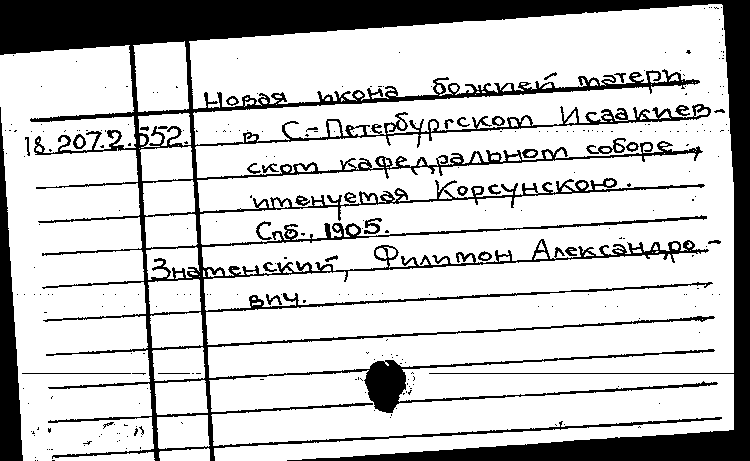 Новая икона божией матери
18.207.2.552. в С.-Петербургском Исаакиев-
ском кафедральном соборе,
именуемая Корсунскою.
Спб., 1905.
Знаменский, Филимон Александро-
вич.